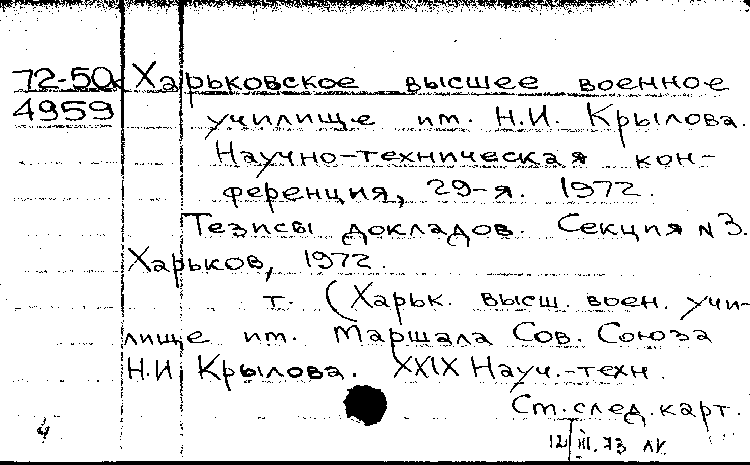 72-50к Харьковское высшее военное
4959 училище им. Н.И. Крылова.
Научно-техническая кон-
ференция, 29-я. 1972.
Тезисы докладов. Секция №3.
Харьков, 1972.
т. (Харьк. высш. воен. учи-
лище им. Маршала Сов. Союза
Н.И. Крылова. XXIX Науч.-техн.
См. след. карт.
4 12/III.73